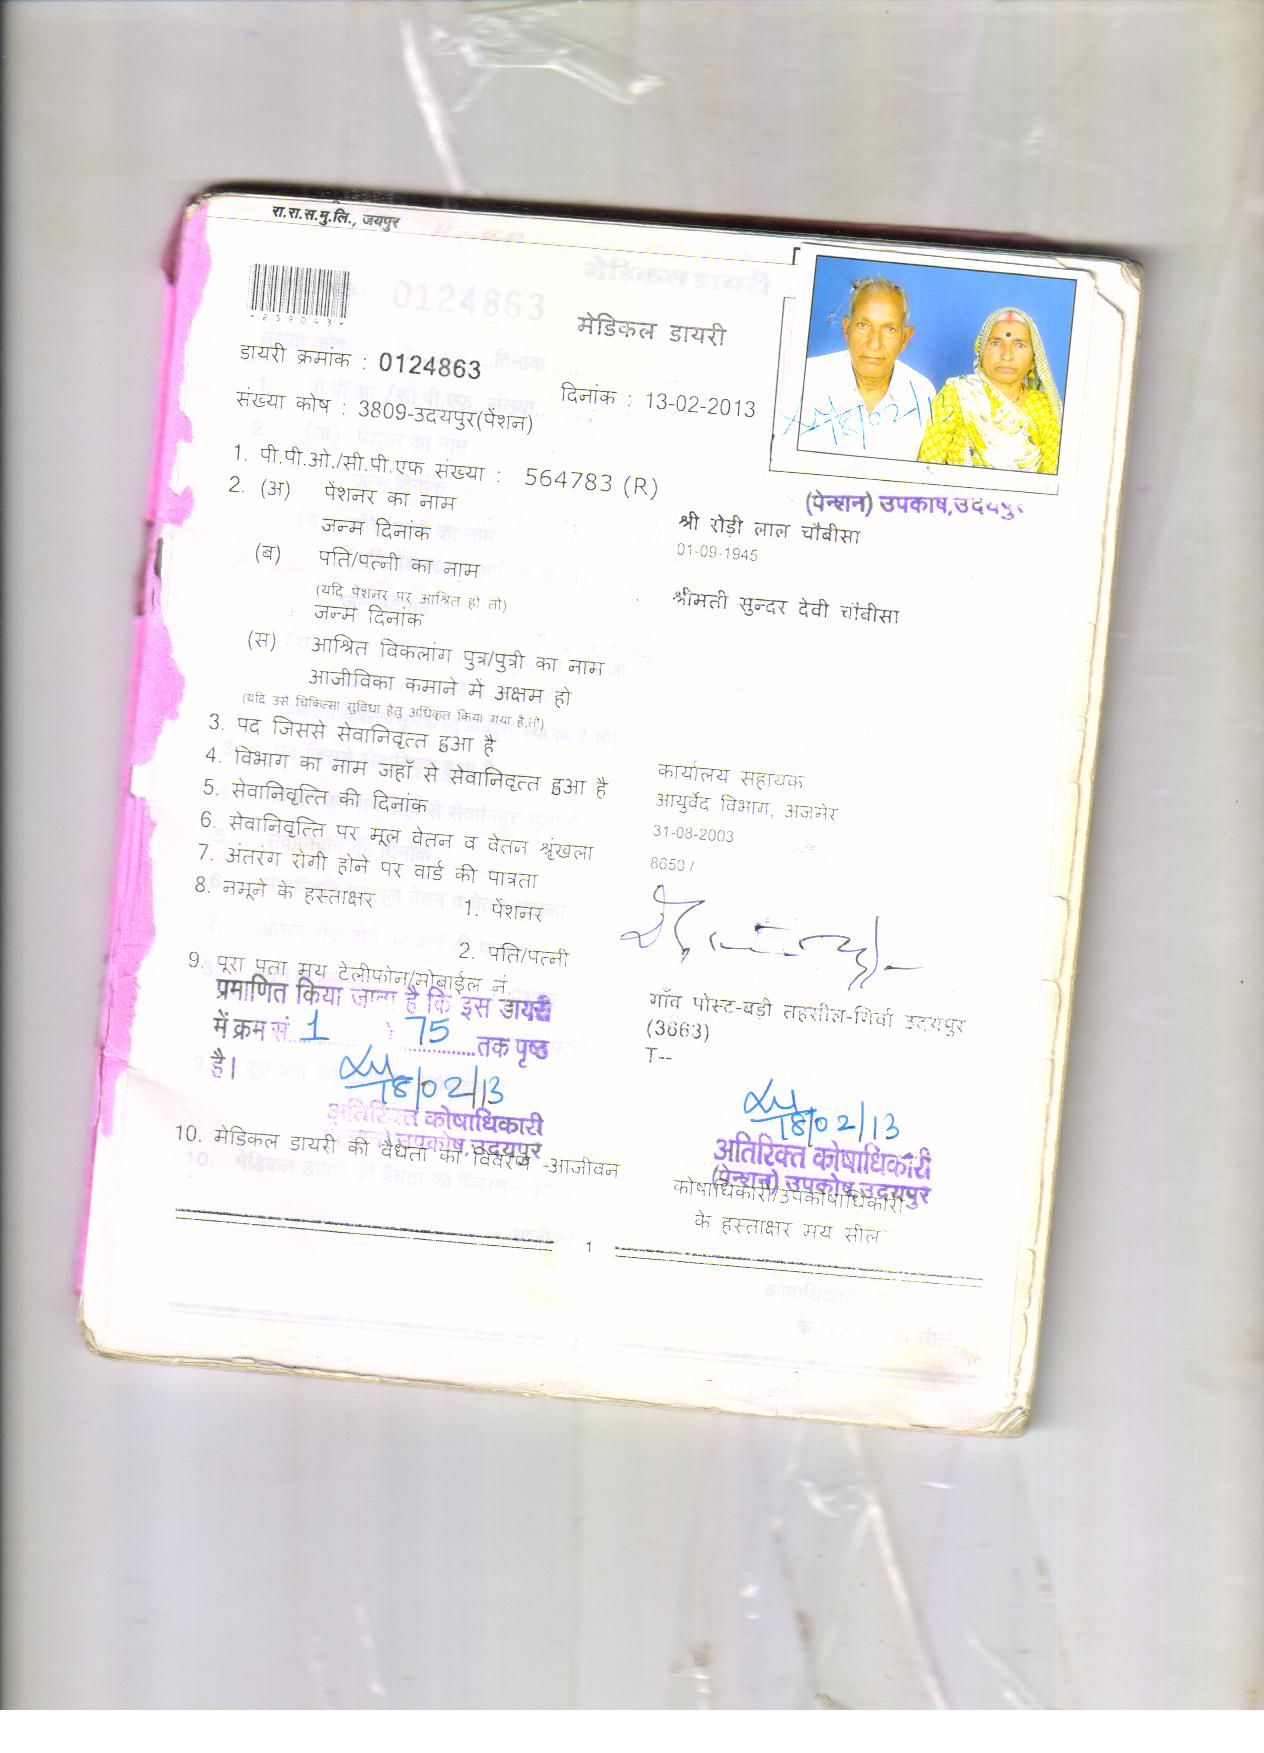 रा.रा.स.मु.लि., जयपुर
- 2 5 9 0 4 3 -
मेडिकल डायरी
डायरी क्रमांक : 0124863
दिनांक : 13-02-2013
संख्या कोष : 3809-उदयपुर(पेंशन)
1. पी.पी.ओ./सी.पी.एफ संख्या : 564783 (R)
18/02/13
(पेन्शन) उपकोष, उदयपुर
2. (अ) पेंशनर का नाम श्री रोड़ी लाल चौबीसा
जन्म दिनांक 01-09-1945
(ब) पति/पत्नी का नाम श्रीमती सुन्दर देवी चौबीसा
(यदि पेंशनर पर आश्रित हो तो)
जन्म दिनांक
(स) आश्रित विकलांग पुत्र/पुत्री का नाम
आजीविका कमाने में अक्षम हो
(यदि उसे चिकित्सा सुविधा हेतु अधिकृत किया गया है,तो)
3. पद जिससे सेवानिवृत्त हुआ है कार्यालय सहायक
4. विभाग का नाम जहाँ से सेवानिवृत्त हुआ है आयुर्वेद विभाग, अजमेर
5. सेवानिवृत्ति की दिनांक 31-08-2003
6. सेवानिवृत्ति पर मूल वेतन व वेतन श्रृंखला 8650 /
7. अंतरंग रोगी होने पर वार्ड की पात्रता
8. नमूने के हस्ताक्षर 1. पेंशनर
2. पति/पत्नी
9. पूरा पता मय टेलीफोन/मोबाईल नं. गाँव पोस्ट-बड़ी तहसील-गिर्वा उदयपुर
(3663)
T--
प्रमाणित किया जाता है कि इस डायरी
में क्रम सं. 1 से 75 तक पृष्ठ
है।
18/02/13
अतिरिक्त कोषाधिकारी
उपकोष, उदयपुर
18/02/13
अतिरिक्त कोषाधिकारी
(पेन्शन) उपकोष, उदयपुर
10. मेडिकल डायरी की वैधता का विवरण -आजीवन
कोषाधिकारी/उपकोषाधिकारी
के हस्ताक्षर मय सील
1